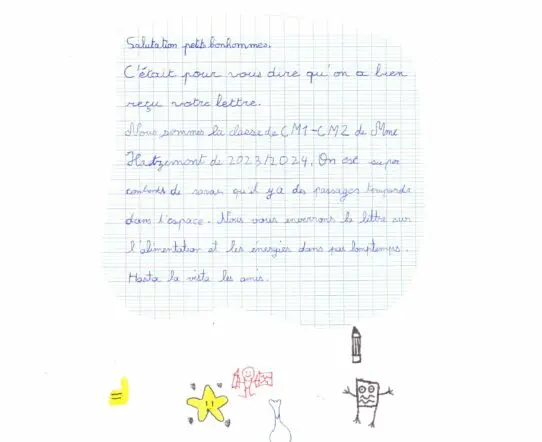 Salutation petits bonhommes.
C'était pour vous dire qu'on a bien
reçu votre lettre.
Nous sommes la classe de CM1-CM2 de Mme
Hatzemont de 2023/2024. On est super
contents de savoir qu'il y a des passages
dans l'espace. Nous vous enverrons la lettre sur
l'alimentation et les énergies dans pas longtemps.
Hasta la vista les amis.